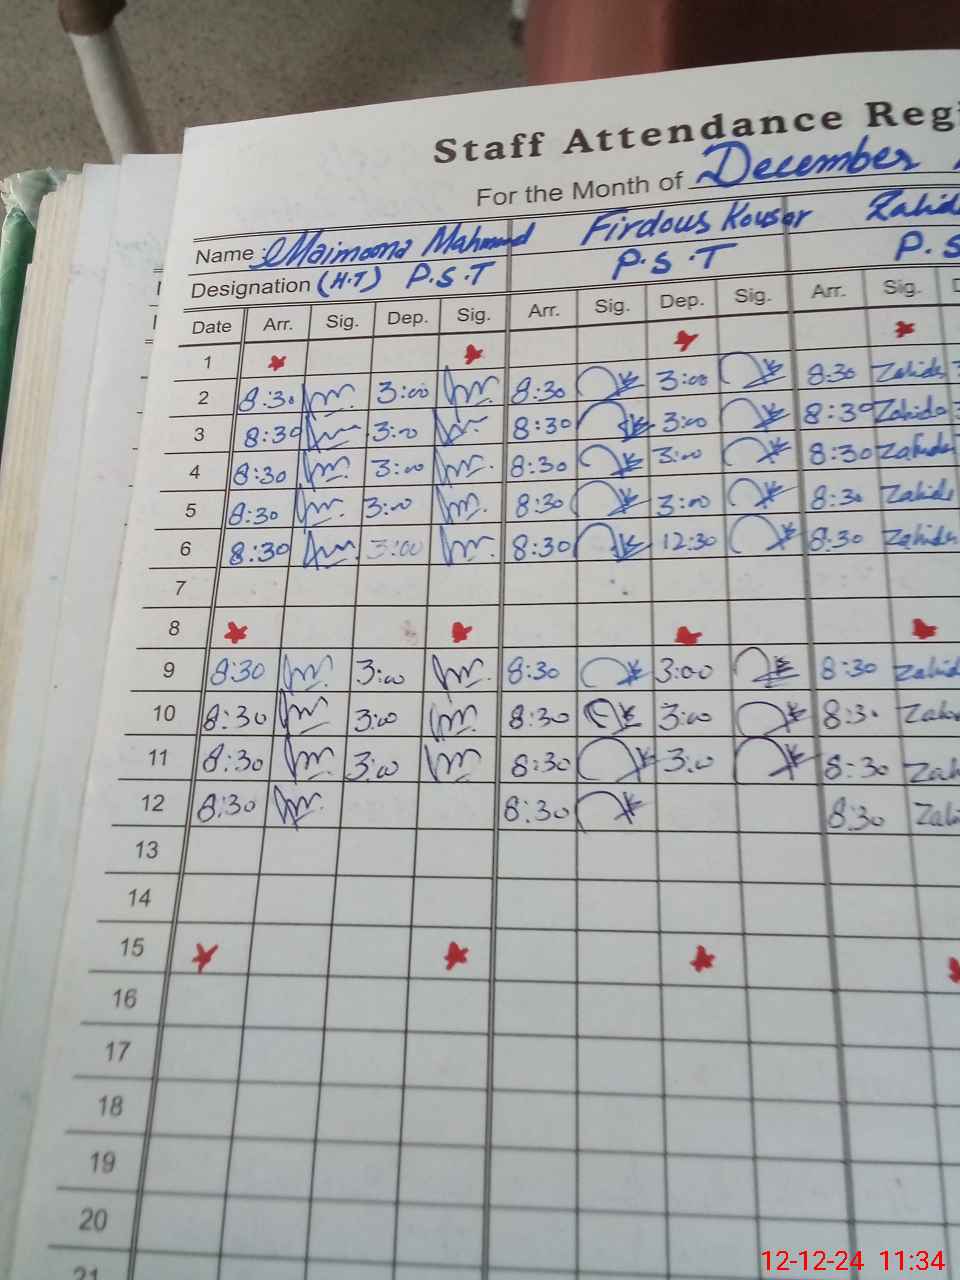 Staff Attendance Reg
For the Month of December
Name: Maimoona Mahmud Firdous Kousar Zahid
Designation (H.T) P.S.T P.S.T P.S
Date Arr. Sig. Dep. Sig. Arr. Sig. Dep. Sig. Arr. Sig. D
1
2 8:30 3:00 8:30 3:00 8:30 Zahida
3 8:30 3:00 8:30 3:00 8:30 Zahida
4 8:30 3:00 8:30 3:00 8:30 Zahida
5 8:30 3:00 8:30 3:00 8:30 Zahida
6 8:30 3:00 8:30 12:30 8:30 Zahida
7
8
9 8:30 3:00 8:30 3:00 8:30 Zahid
10 8:30 3:00 8:30 3:00 8:30 Zah
11 8:30 3:00 8:30 3:00 8:30 Zah
12 8:30 8:30 8:30 Zah
13
14
15
16
17
18
19
20
21
12-12-24 11:34